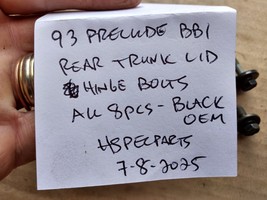 93 PRELUDE BB1
REAR TRUNK LID
HINGE BOLTS
ALL 8PCS - BLACK
OEM
HSPECPARTS
7-8-2025